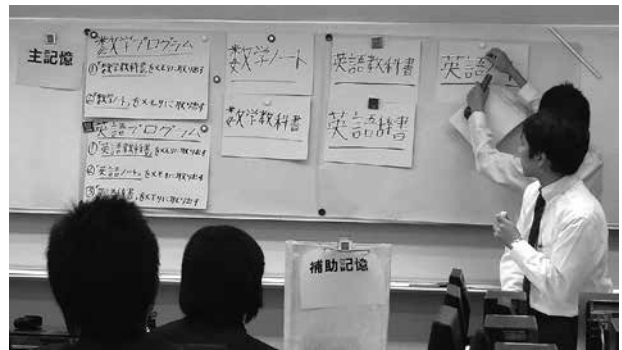 主記憶
数学プログラム
①「数学教科書」をメモリに取り出す
②「数学ノート」をメモリに取り出す
英語プログラム
①「英語教科書」をメモリに取り出す
②「英語ノート」をメモリに取り出す
数学ノート
数学教科書
英語教科書
英語辞書
英語
補助記憶